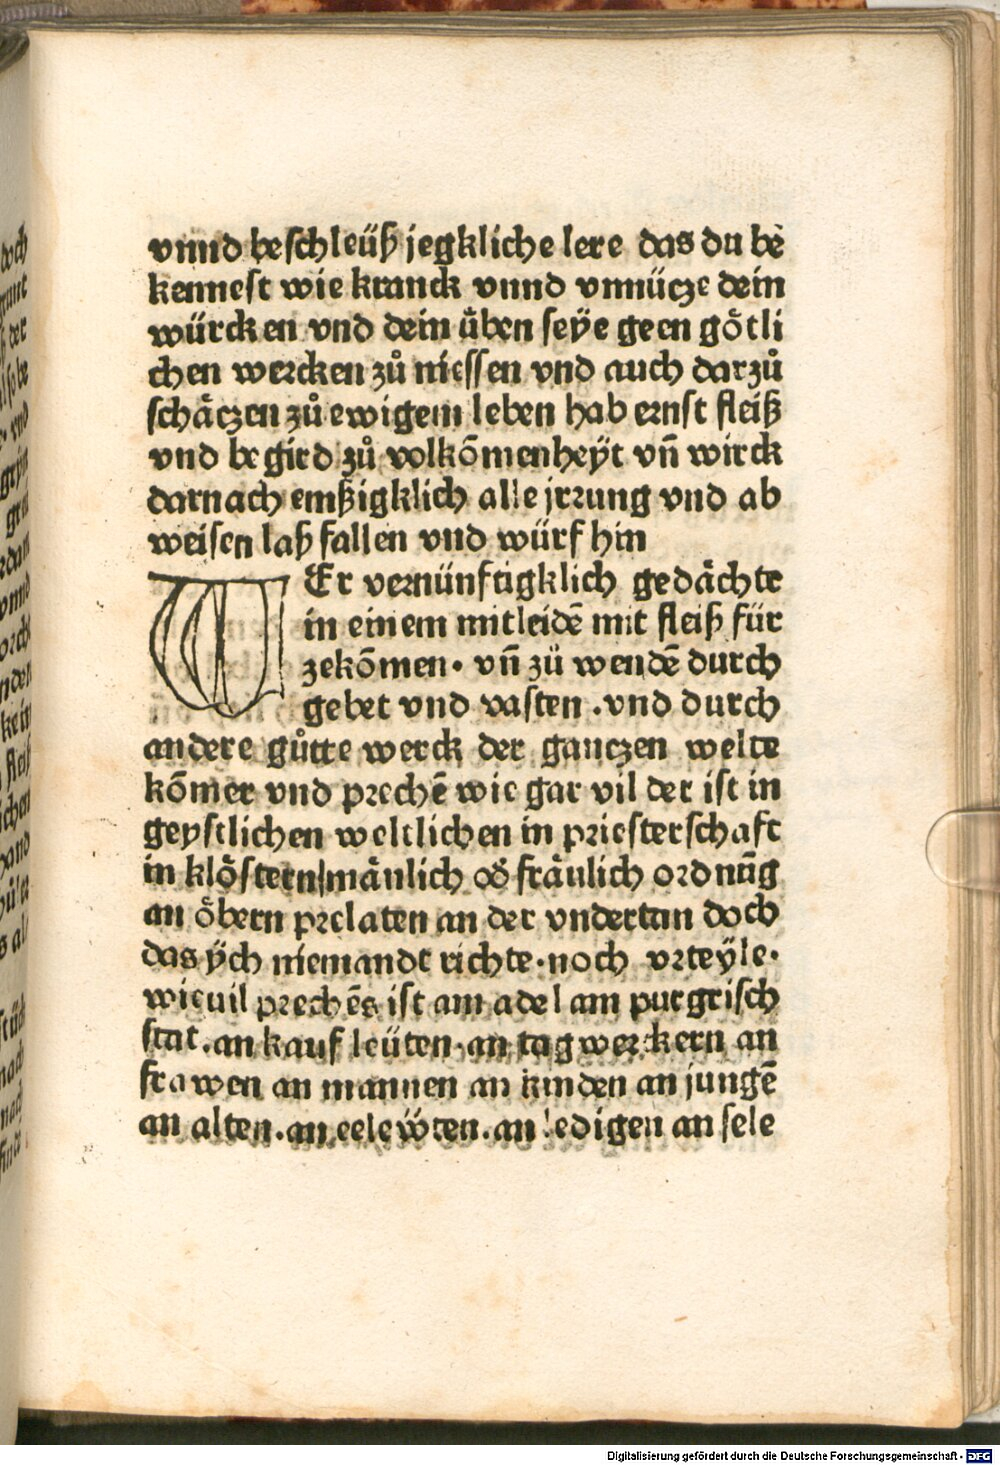 vnnd beschleüß jegkliche lere das du be
kennest wie kranck vnnd vnnücze dein
würcken vnd dein üben seÿe geen götli
chen wercken zů niessen vnd auch darzů
schäczen zů ewigem leben hab ernst fleiß
vnd begird zů volkōmenheÿt vn̄ wirck
darnach emßigklich alle jrrung vnd ab
weisen laß fallen vnd würf hin
WEr vernünftigklich gedächte
in einem mitleidē mit fleiß für
zekōmen. vn̄ zü wendē durch
gebet vnd vasten .vnd durch
andere gůtte werck der ganczen welte
kōmer vnd prechē wie gar vil der ist in
geystlichen weltlichen in priesterschaft
in klöstern mänlich od̛ fräulich ordnūg
an öbern prelaten an der vndertan doch
das ÿch niemandt richte.noch vrteÿle.
wieuil prechēs ist am adel am purgrisch
stat.an kaufleüten.an tagwerckern an
frawen an mannen an kinden an jungē
an alten.an eelewten.an ledigen an sele
Digitalisierung gefördert durch die Deutsche Forschungsgemeinschaft - DFG